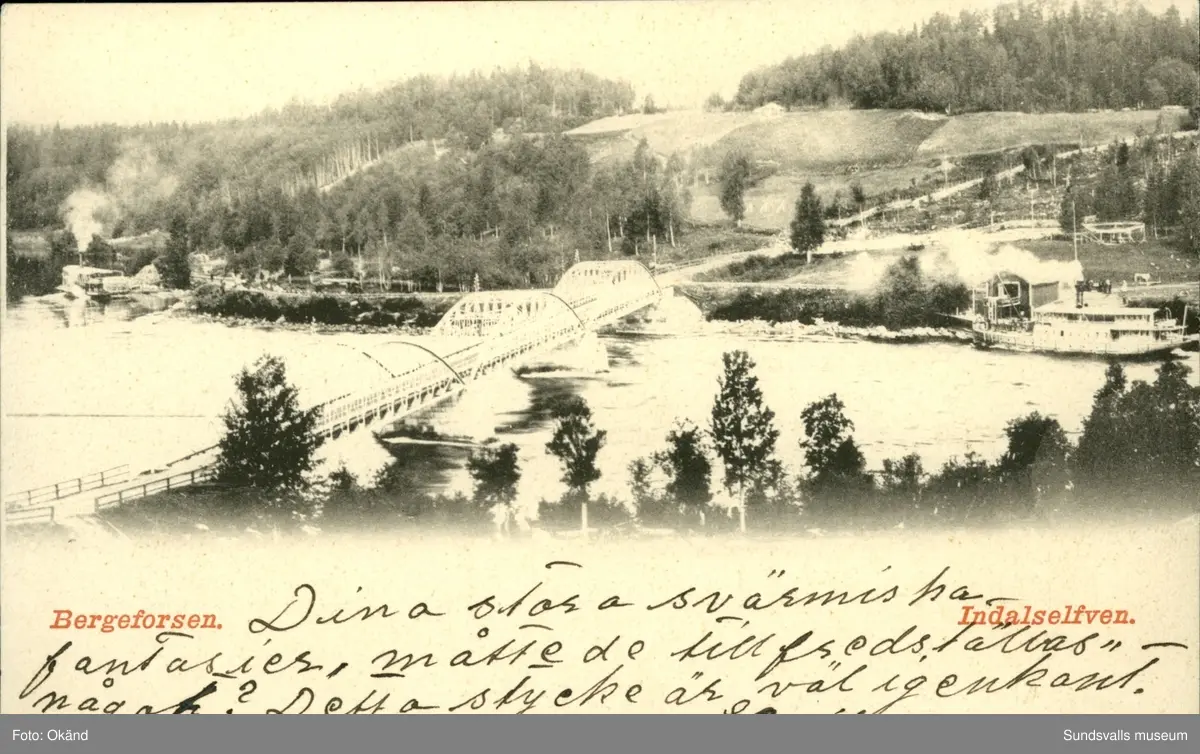 Bergeforsen.
Indalselfven.
Dina stora svärmiska
fantasier, måtte de tillfredställas
något? Detta stycke är väl igenkänt.
Foto: Okänd
Sundsvalls museum